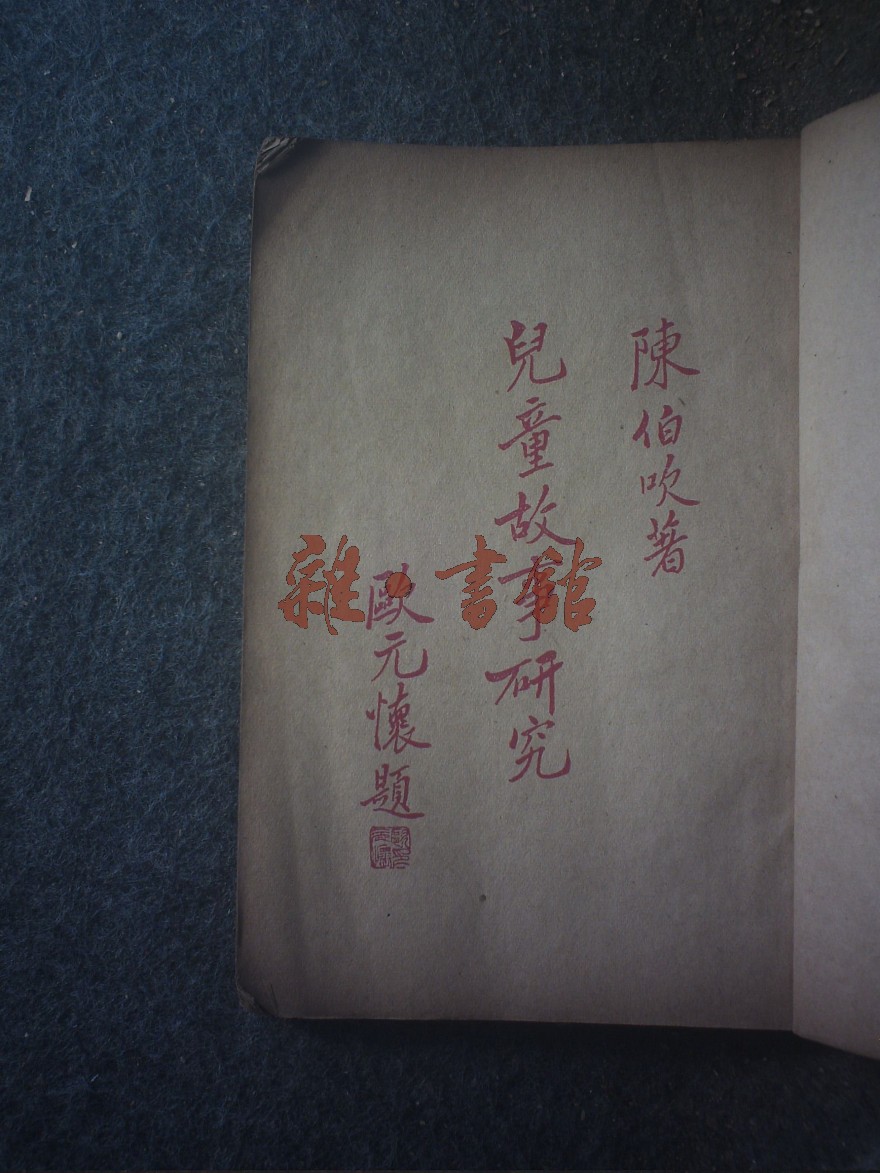 陳伯吹著
兒童故事研究
歐元懷題
雜·書館